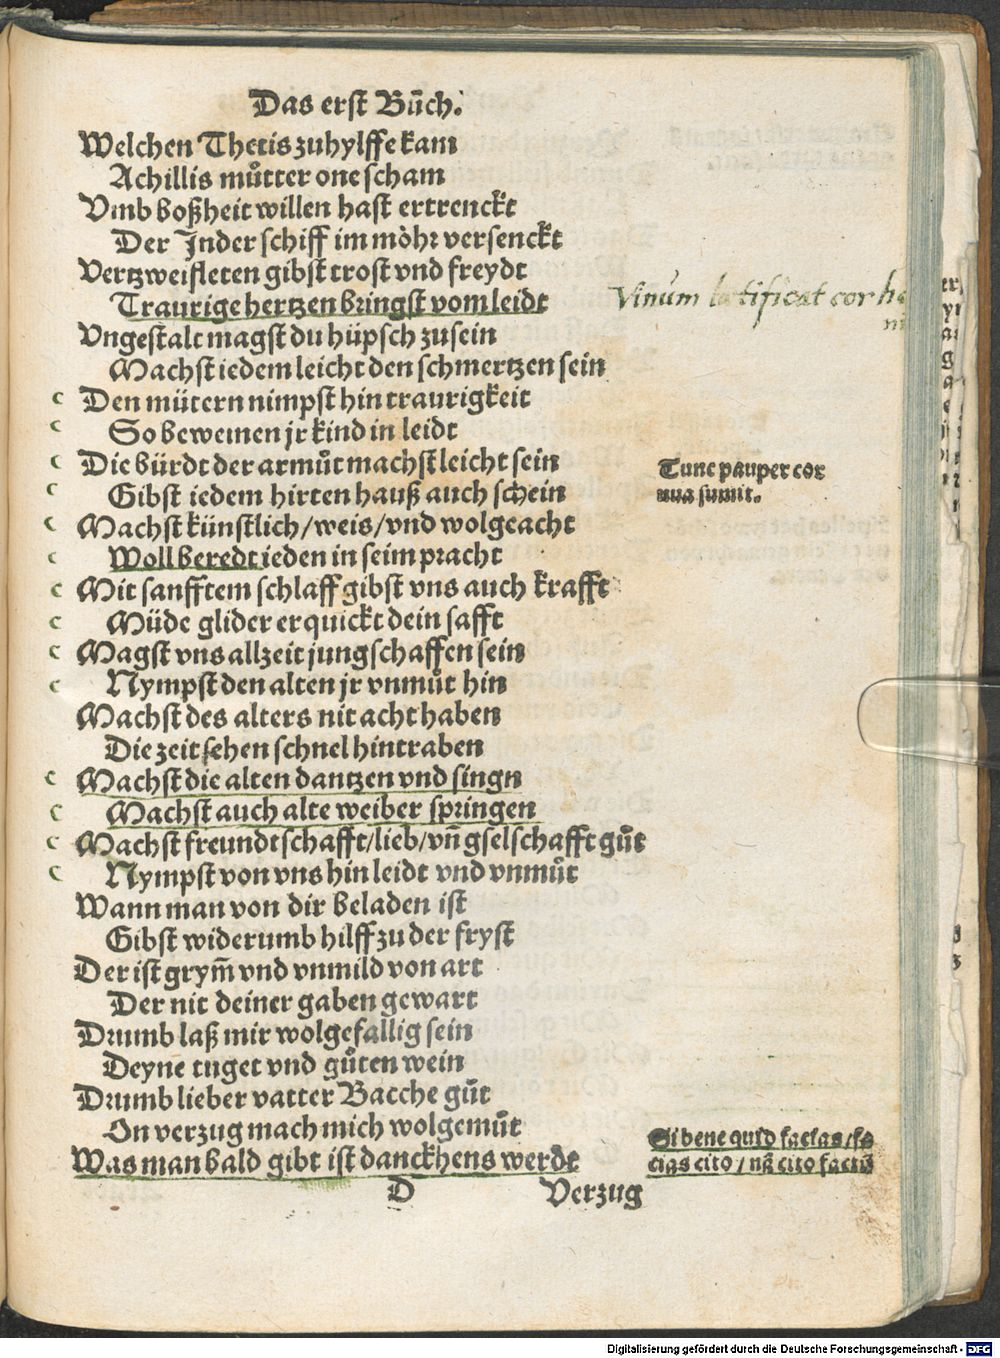 Das erst Bůch.
Welchen Thetis zuhylffe kam
Achillis můtter one scham
Vmb boßheit willen hast ertrenckt
Der Jnder schiff im möhr versenckt
Vertzweifleten gibst trost vnd freydt
Traurige hertzen bringst vom leidt
Vinum lætificat cor ho
ni
Vngestalt magst du hüpsch zu sein
Machst iedem leicht den schmertzen sein
c Den mütern nimpst hin traurigkeit
c So beweinen jr kind in leidt
c Die bürdt der armůt machst leicht sein
Tunc pauper cor
nua sumit.
c Gibst iedem hirten hauß auch schein
c Machst künstlich/weis/vnd wolgeacht
c Woll beredt ieden in seim pracht
c Mit sanfftem schlaff gibst vns auch krafft
c Müde glider erquickt dein safft
c Magst vns allzeit jung schaffen sein
c Nympst den alten jr vnmůt hin
Machst des alters nit acht haben
Die zeit sehen schnel hintraben
c Machst die alten dantzen vnd singn
c Machst auch alte weiber springen
c Machst freundtschafft/lieb/vñ gselschafft gůt
c Nympst von vns hin leidt vnd vnmůt
Wann man von dir beladen ist
Gibst widerumb hilff zu der fryst
Der ist grym̃ vnd vnmild von art
Der nit deiner gaben gewart
Drumb laß mir wolgefallig sein
Deyne tuget vnd gůten wein
Drumb lieber vatter Bacche gůt
On verzug mach mich wolgemůt
Was man bald gibt ist danckhens werdt
Si bene quid facias/fa
cias cito/nã cito factũ
D
Verzug
Digitalisierung gefördert durch die Deutsche Forschungsgemeinschaft - DFG